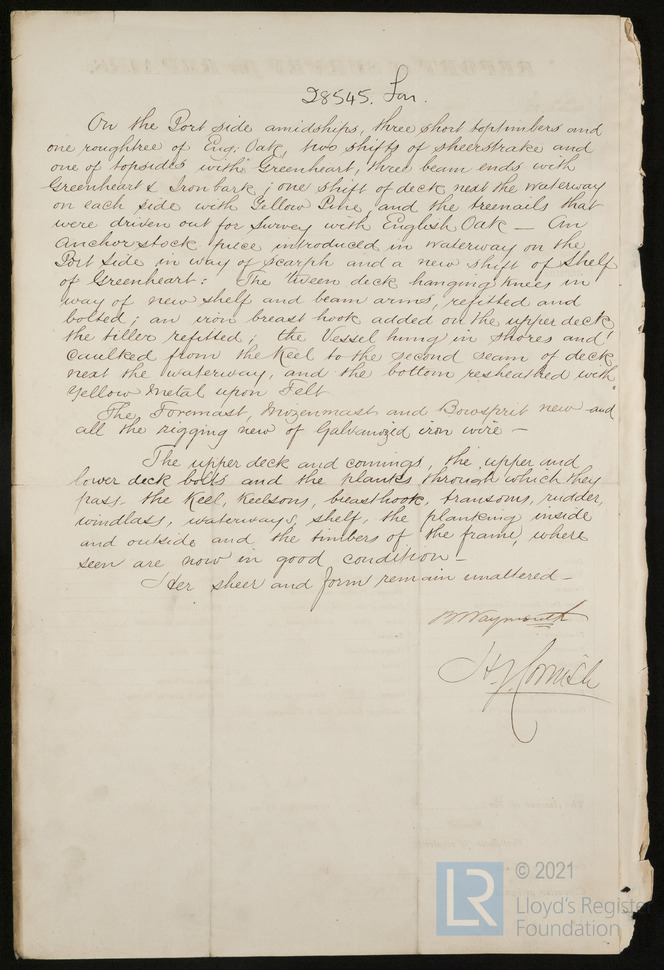 28545. Lon.
On the Port side amidships, three short toptimbers and
one roughtree of Eng: Oak, two shifts of sheerstrake and
one of topsides with Greenheart, three beam ends with
Greenheart & Ironbark ; one shift of deck next the waterway
on each side with Yellow Pine, and the treenails that
were driven out for Survey with English Oak — An
Anchor stock piece introduced in waterway on the
Port Side in way of Scarph and a new shift of Shelf
of Greenheart : The 'tween deck hanging knees in
way of new shelf and beam arms, refitted and
bolted ; an iron breast hook added on the upper deck,
the tiller refitted ; the Vessel hung in shores and
Caulked from the Keel to the second seam of deck
next the waterway, and the bottom resheathed with
Yellow Metal upon Felt
The Foremast, Mizenmast and Bowsprit new and
all the rigging new of Galvanized iron wire —
The upper deck and comings, the upper and
lower deck bolts and the planks through which they
pass. the Keel, Keelsons, breasthook, transoms, rudder,
windlass, waterways, shelf, the planking inside
and outside and the timbers of the frame, where
seen are now in good condition —
Her sheer and form remain unaltered —
B Waymouth
H J Cornish
LR
© 2021
Lloyd's Register
Foundation